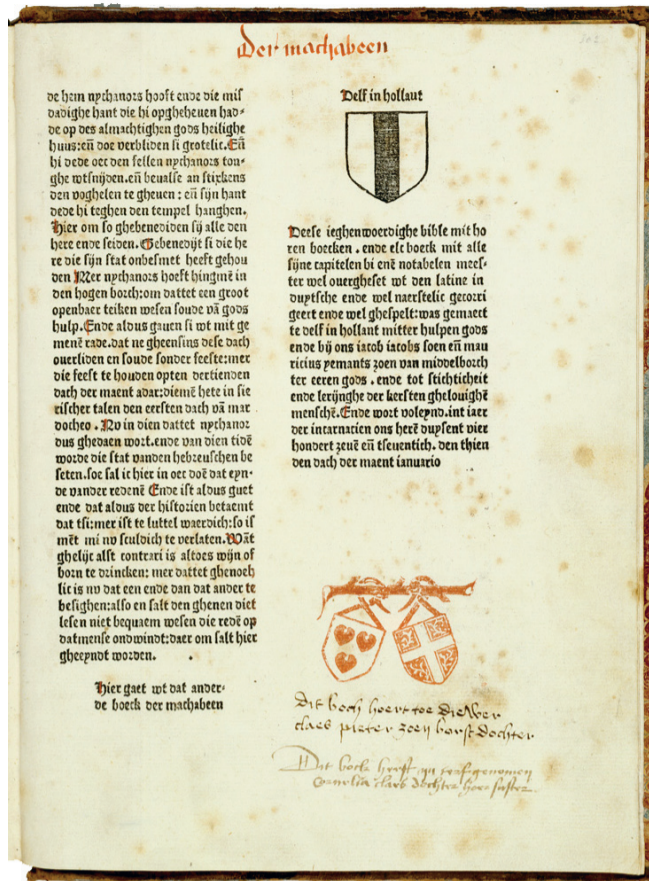 Der machabeen
de hem nychanors hooft ende die mis
dadighe hant die hi opgheheuen had-
de op des almachtighen gods heilighe
huus: eñ doe verbliden si grotelic. Eñ
hi dede oec den fellen nychanors ton-
ghe wtsnijden. eñ beualse an stixkens
den voghelen te gheuen : eñ sijn hant
dede hi teghen den tempel hanghen.
Hier om so ghebenediden sij alle den
here ende seiden. Gebenedijt si die he
re die sijn stat onbesmet heeft gehou
den Mer nychanors hoeft hingmē in
den hogen borch: om dattet een groot
openbaer teiken wesen soude vā gods
hulp. Ende aldus gauen si wt mit ge
menē rade. dat ne gheensins dese dach
ouerliden en soude sonder feeste: mer
die feest te houden opten dertienden
dach der maent adar: diemē hete in sie
rischer talen den eersten dach vā mar
docheo . Nv in dien dattet nychanor
dus ghedaen wort. ende van dien tidē
worde die stat vanden hebreuschen be
seten. soe sal ic hier in oec doē dat eyn-
de vander redenē Ende ist aldus guet
ende dat aldus der historien betaemt
dat tsi: mer ist te luttel waerdich: so is
mēt mi nv sculdich te verlaten. Wāt
ghelijc alst contrari is altoes wijn of
born te drincken: mer dattet ghenoeh
lic is nv dat een ende dan dat ander te
besighen: also en salt den ghenen diet
lesen niet bequaem wesen die redē op
datmense ondwindt: daer om salt hier
gheeyndt worden.
Hier gaet wt dat ander-
de boeck der machabeen
Delf in hollant
Deese ieghenwoerdighe bible mit ho
ren boecken . ende elc boeck mit alle
sijne capitelen bi enē notabelen mees-
ter wel ouergheset wt den latine in
duytsche ende wel naerstelic gecorri
geert ende wel ghespelt: was gemaect
te delf in hollant mitter hulpen gods
ende bij ons iacob iacobs soen eñ mau
ricius yemants zoen van middelborch
ter eeren gods . ende tot stichticheit
ende lerijnghe der kersten ghelouighē
menschē. Ende wort voleynd. int iaer
der incarnacien ons herē duysent vier
hondert zeuē eñ tseuentich. den thien
den dach der maent ianuario
Dit boeck hoert toe dieWer
claes pieter zoen borst dochter
Dit boeck heeft genomen
Cornelia claes dochter hoer suster